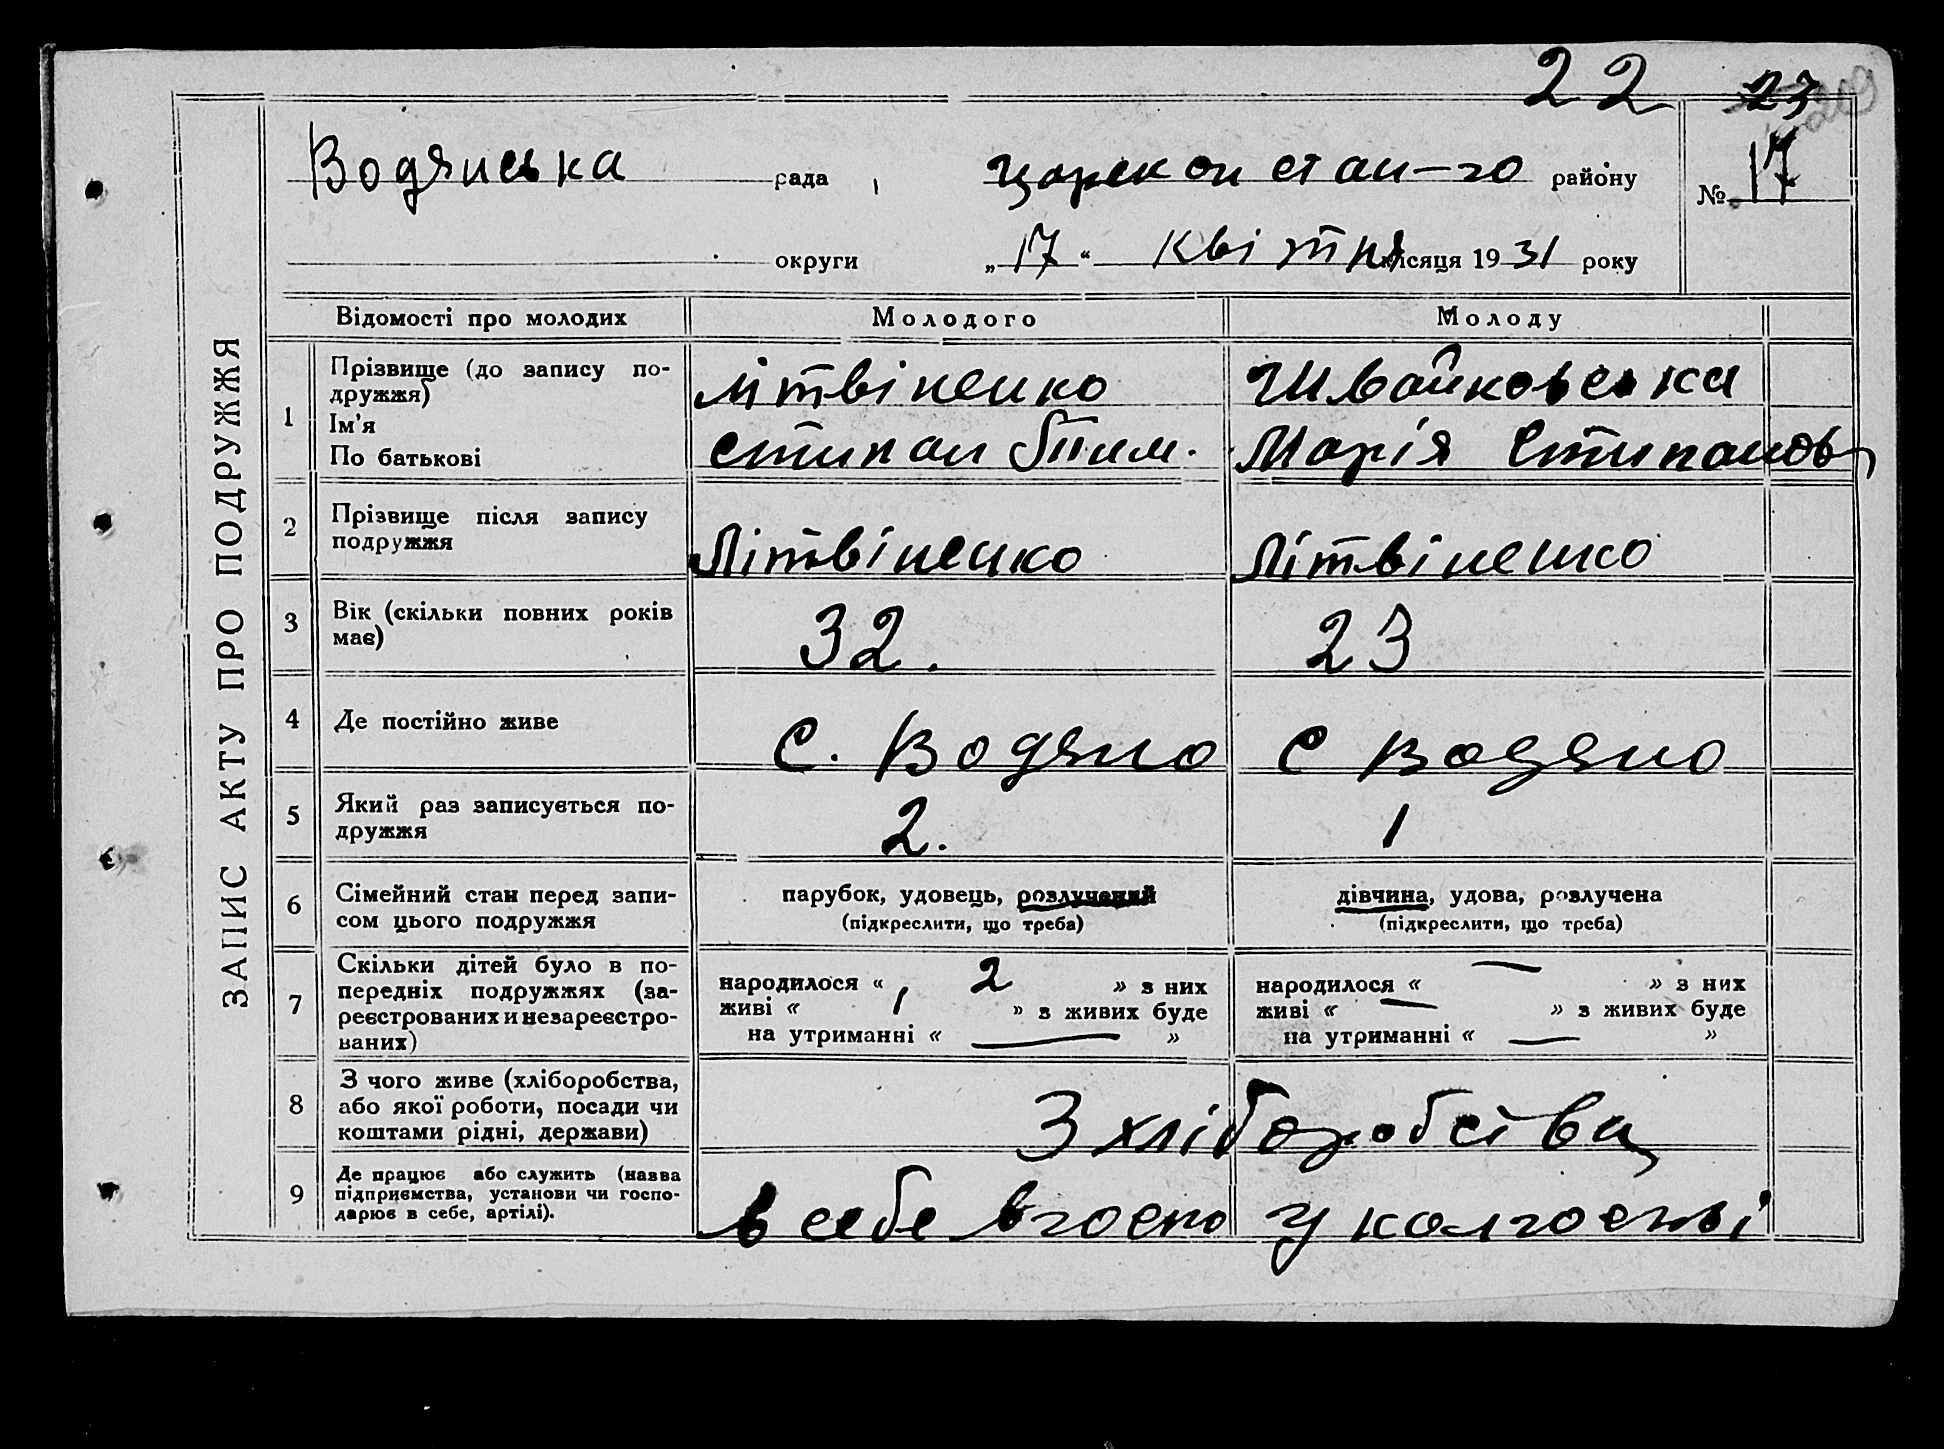 22 23
Водянська рада Царекон стан-го району № 17
округи „17“ Квітня місяця 1931 року
ЗАПИС АКТУ ПРО ПОДРУЖЖЯ
Відомості про молодих Молодого Молоду
1 Прізвище (до запису по-
дружжя) Літвіненко Швайковська
Ім'я
По батькові Стипан Степанов
Марія
2 Прізвище після запису
подружжя Літвіненко Літвіненко
3 Вік (скільки повних років
має) 32. 23
4 Де постійно живе С. Водяно С Водяно
5 Який раз записується по-
дружжя 2. 1
6 Сімейний стан перед запи-
сом цього подружжя парубок, удовець, розлучений дівчина, удова, розлучена
(підкреслити, що треба) (підкреслити, що треба)
7 Скільки дітей було в по-
передніх подружжях (за-
реєстрованих и незареєстро-
ваних) народилося « 2 » з них народилося « — » з них
живі « 1 » з живих буде живі « — » з живих буде
на утриманні « — » на утриманні « — »
8 З чого живе (хліборобства,
або якої роботи, посади чи
коштами рідні, держави) З хліборобства
9 Де працює або служить (назва
підприємства, установи чи госпо-
дарює в себе, артілі). в себе в госпо у колгоспі